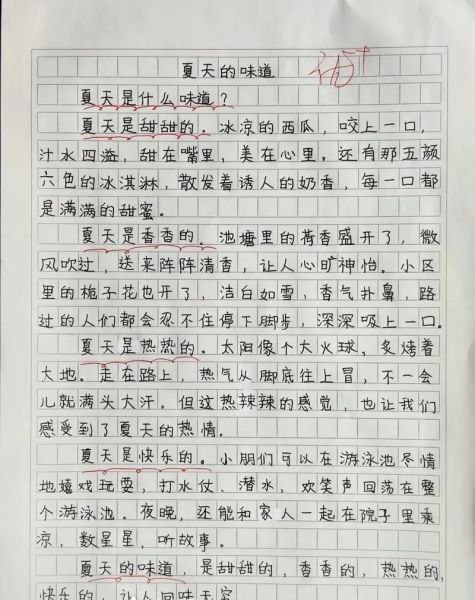 夏天的味道
夏天是什么味道?
夏天是甜甜的。冰凉的西瓜,咬上一口,
汁水四溢,甜在嘴里,美在心里。还有那五颜
六色的冰淇淋,散发着诱人的奶香,每一口都
是满满的甜蜜。
夏天是香香的。池塘里的荷香盛开了,微
风吹过,送来阵阵清香,让人心旷神怡。小区
里的栀子花也开了,洁白如雪,香气扑鼻,路
过的人们都会忍不住停下脚步,深深吸上一口。
夏天是热热的。太阳像个大火球,炙烤着
大地。走在路上,热气从脚底往上冒,不一会
儿就满头大汗。但这热辣辣的感觉,也让我们
感受到了夏天的热情。
夏天是快乐的。小朋们可以在游泳池尽情
地嬉戏玩耍,打水仗、潜水,欢笑声回荡在整
个游泳池。夜晚,还能和家人一起在院子里乘
凉,数星星,听故事。
夏天的味道,是甜甜的,香香的,热热的,
快乐的,让人回味无穷